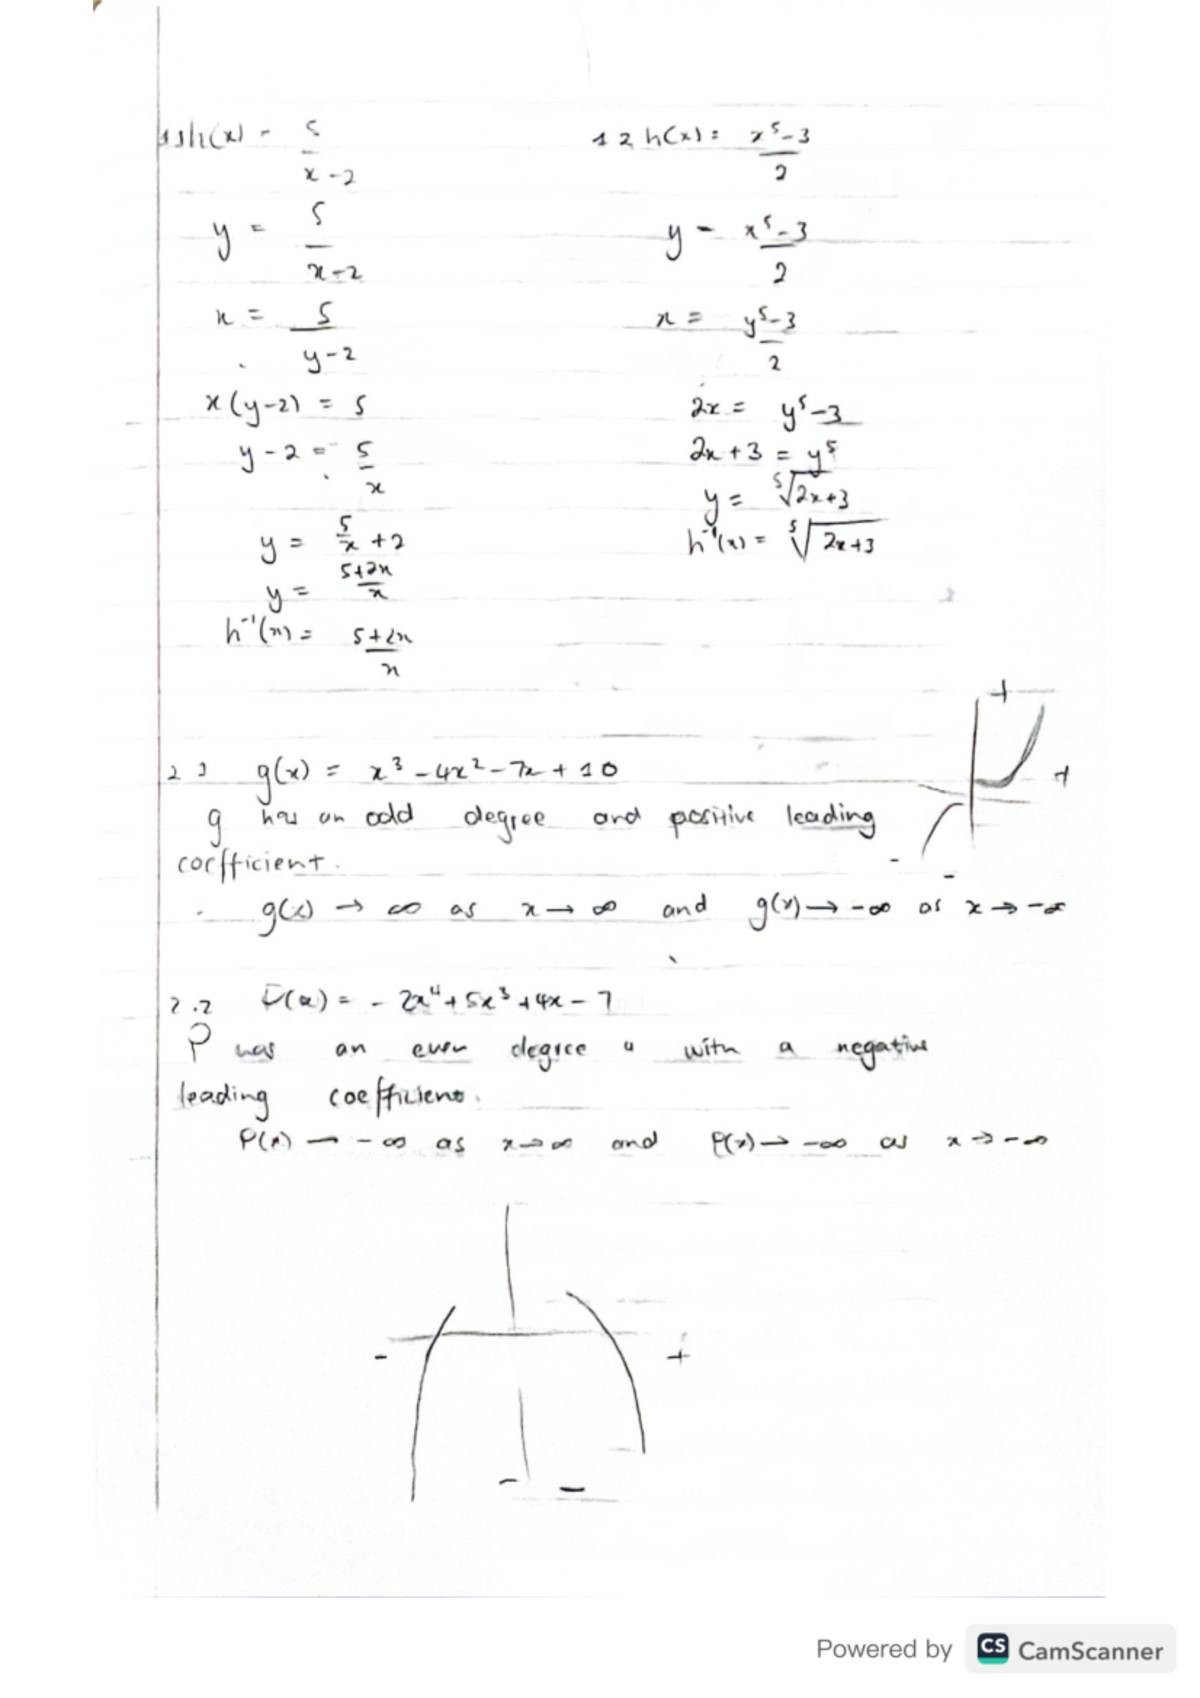 1.1 h(x) = 5/(x-2)
y = 5/(x-2)
x = 5/(y-2)
x(y-2) = 5
y-2 = 5/x
y = 5/x +2
y = (5+2x)/x
h⁻¹(x) = (5+2x)/x
1 2 h(x) = (x⁵-3)/2
y = (x⁵-3)/2
x = (y⁵-3)/2
2x = y⁵-3
2x+3 = y⁵
y = ⁵√(2x+3)
h⁻¹(x) = ⁵√(2x+3)
+
+
-
-
2 1 g(x) = x³-4x²-7x+10
g has an odd degree and positive leading
coefficient.
g(x) → ∞ as x → ∞ and g(x) → -∞ as x → -∞
2.2 P(x) = -2x⁴+5x³+4x-7
P has an even degree 4 with a negative
leading coefficient.
P(x) → -∞ as x → ∞ and P(x) → -∞ as x → -∞
- +
- -
Powered by CS CamScanner